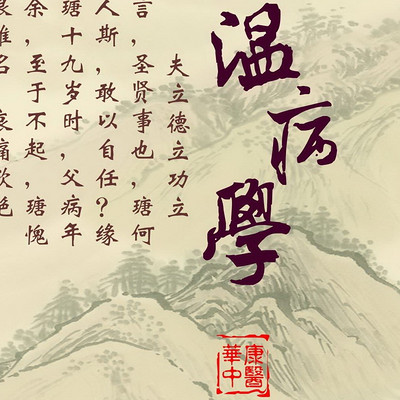 温病學
康醫
華中
夫立德立功立
言,圣贤事也,瑭何
人斯,敢以自任?缘
瑭十九岁时,父病年
余,至于不起,瑭愧
名 哀痛欲